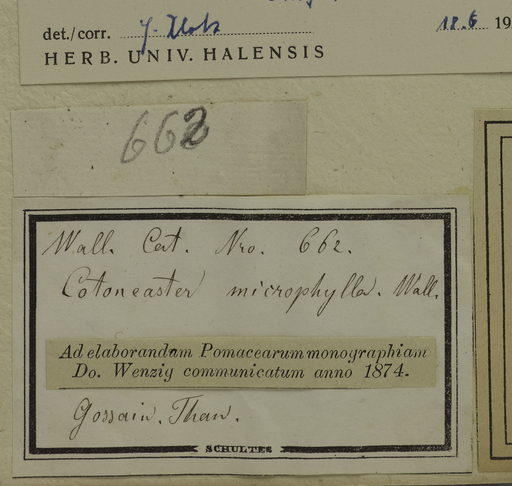 det./corr. J. Klotz 18.6 19
HERB. UNIV. HALENSIS
662
Wall. Cat. Nro. 662.
Cotoneaster microphylla. Wall.
Ad elaborandam Pomacearum monographiam
Do. Wenzig communicatum anno 1874.
Gossain. Than.
SCHULTES